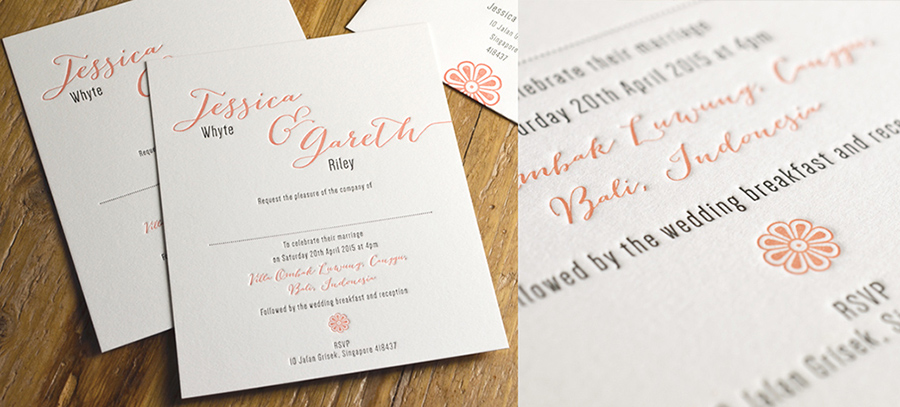 Jessica
Whyte
Jessica
Whyte
&
Gareth
Riley
Request the pleasure of the company of
To celebrate their marriage
on Saturday 20th April 2015 at 4pm
Villa Ombak Luwung, Canggu,
Bali, Indonesia
Followed by the wedding breakfast and reception
RSVP
10 Jalan Grisek, Singapore 418437
Jessica
10 Jalan
Singapore
418437
celebrate their marriage
urday 20th April 2015 at 4pm
Ombak Luwung, Canggu,
Bali, Indonesia
Followed by the wedding breakfast and rece
RSVP
Jalan Grisek, S